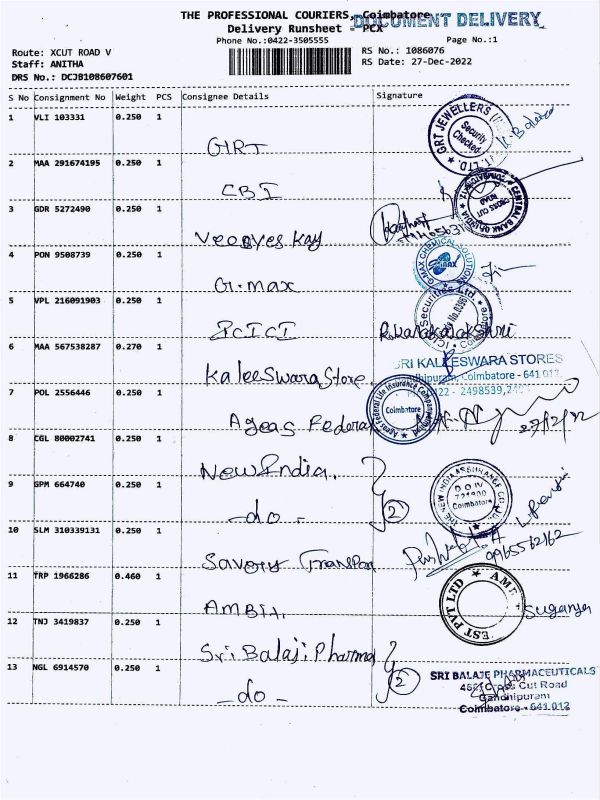 THE PROFESSIONAL COURIERS, Coimbatore
DOCUMENT DELIVERY
Delivery Runsheet - PCX
Phone No.:0422-3505555
Page No.:1
Route: XCUT ROAD V
RS No.: 1086076
Staff: ANITHA
RS Date: 27-Dec-2022
DRS No.: DCJB108607601
S No Consignment No Weight PCS Consignee Details Signature
1 VLI 103331 0.250 1
GRT
GRT JEWELLERS
Security Checked
2 MAA 291674195 0.250 1
CBI
CENTRAL BANK OF INDIA
CROSS CUT ROAD
3 GDR 5272490 0.250 1
Veegyes Kay
4 PON 9508739 0.250 1
G.max
G-MAX CHEMICAL SOLUTIONS
GMAX
5 VPL 216091903 0.250 1
ICICI
ICICI Securities Ltd.
6 MAA 567538287 0.270 1
Kaleeswara Store
SRI KALEESWARA STORES
Gandhipuram, Coimbatore - 641 012
7 POL 2556446 0.250 1
Ageas Federal
Ageas Federal Life Insurance Company Limited
Coimbatore
27/12/22
8 CGL 80002741 0.250 1
New India.
9 GPM 664740 0.250 1
- do - 2
THE NEW INDIA ASSURANCE CO. LTD
D O IV
721900
Coimbatore
10 SLM 310339131 0.250 1
Savory Transpor
9965562162
11 TRP 1966286 0.460 1
AMBIT
EST PVT LTD
Suganya
12 TNJ 3419837 0.250 1
Sri Balaji Pharma
13 NGL 6914570 0.250 1
- do - 2
SRI BALAJE PHARMACEUTICALS
Cross Cut Road
Gandhipuram
Coimbatore - 641 012